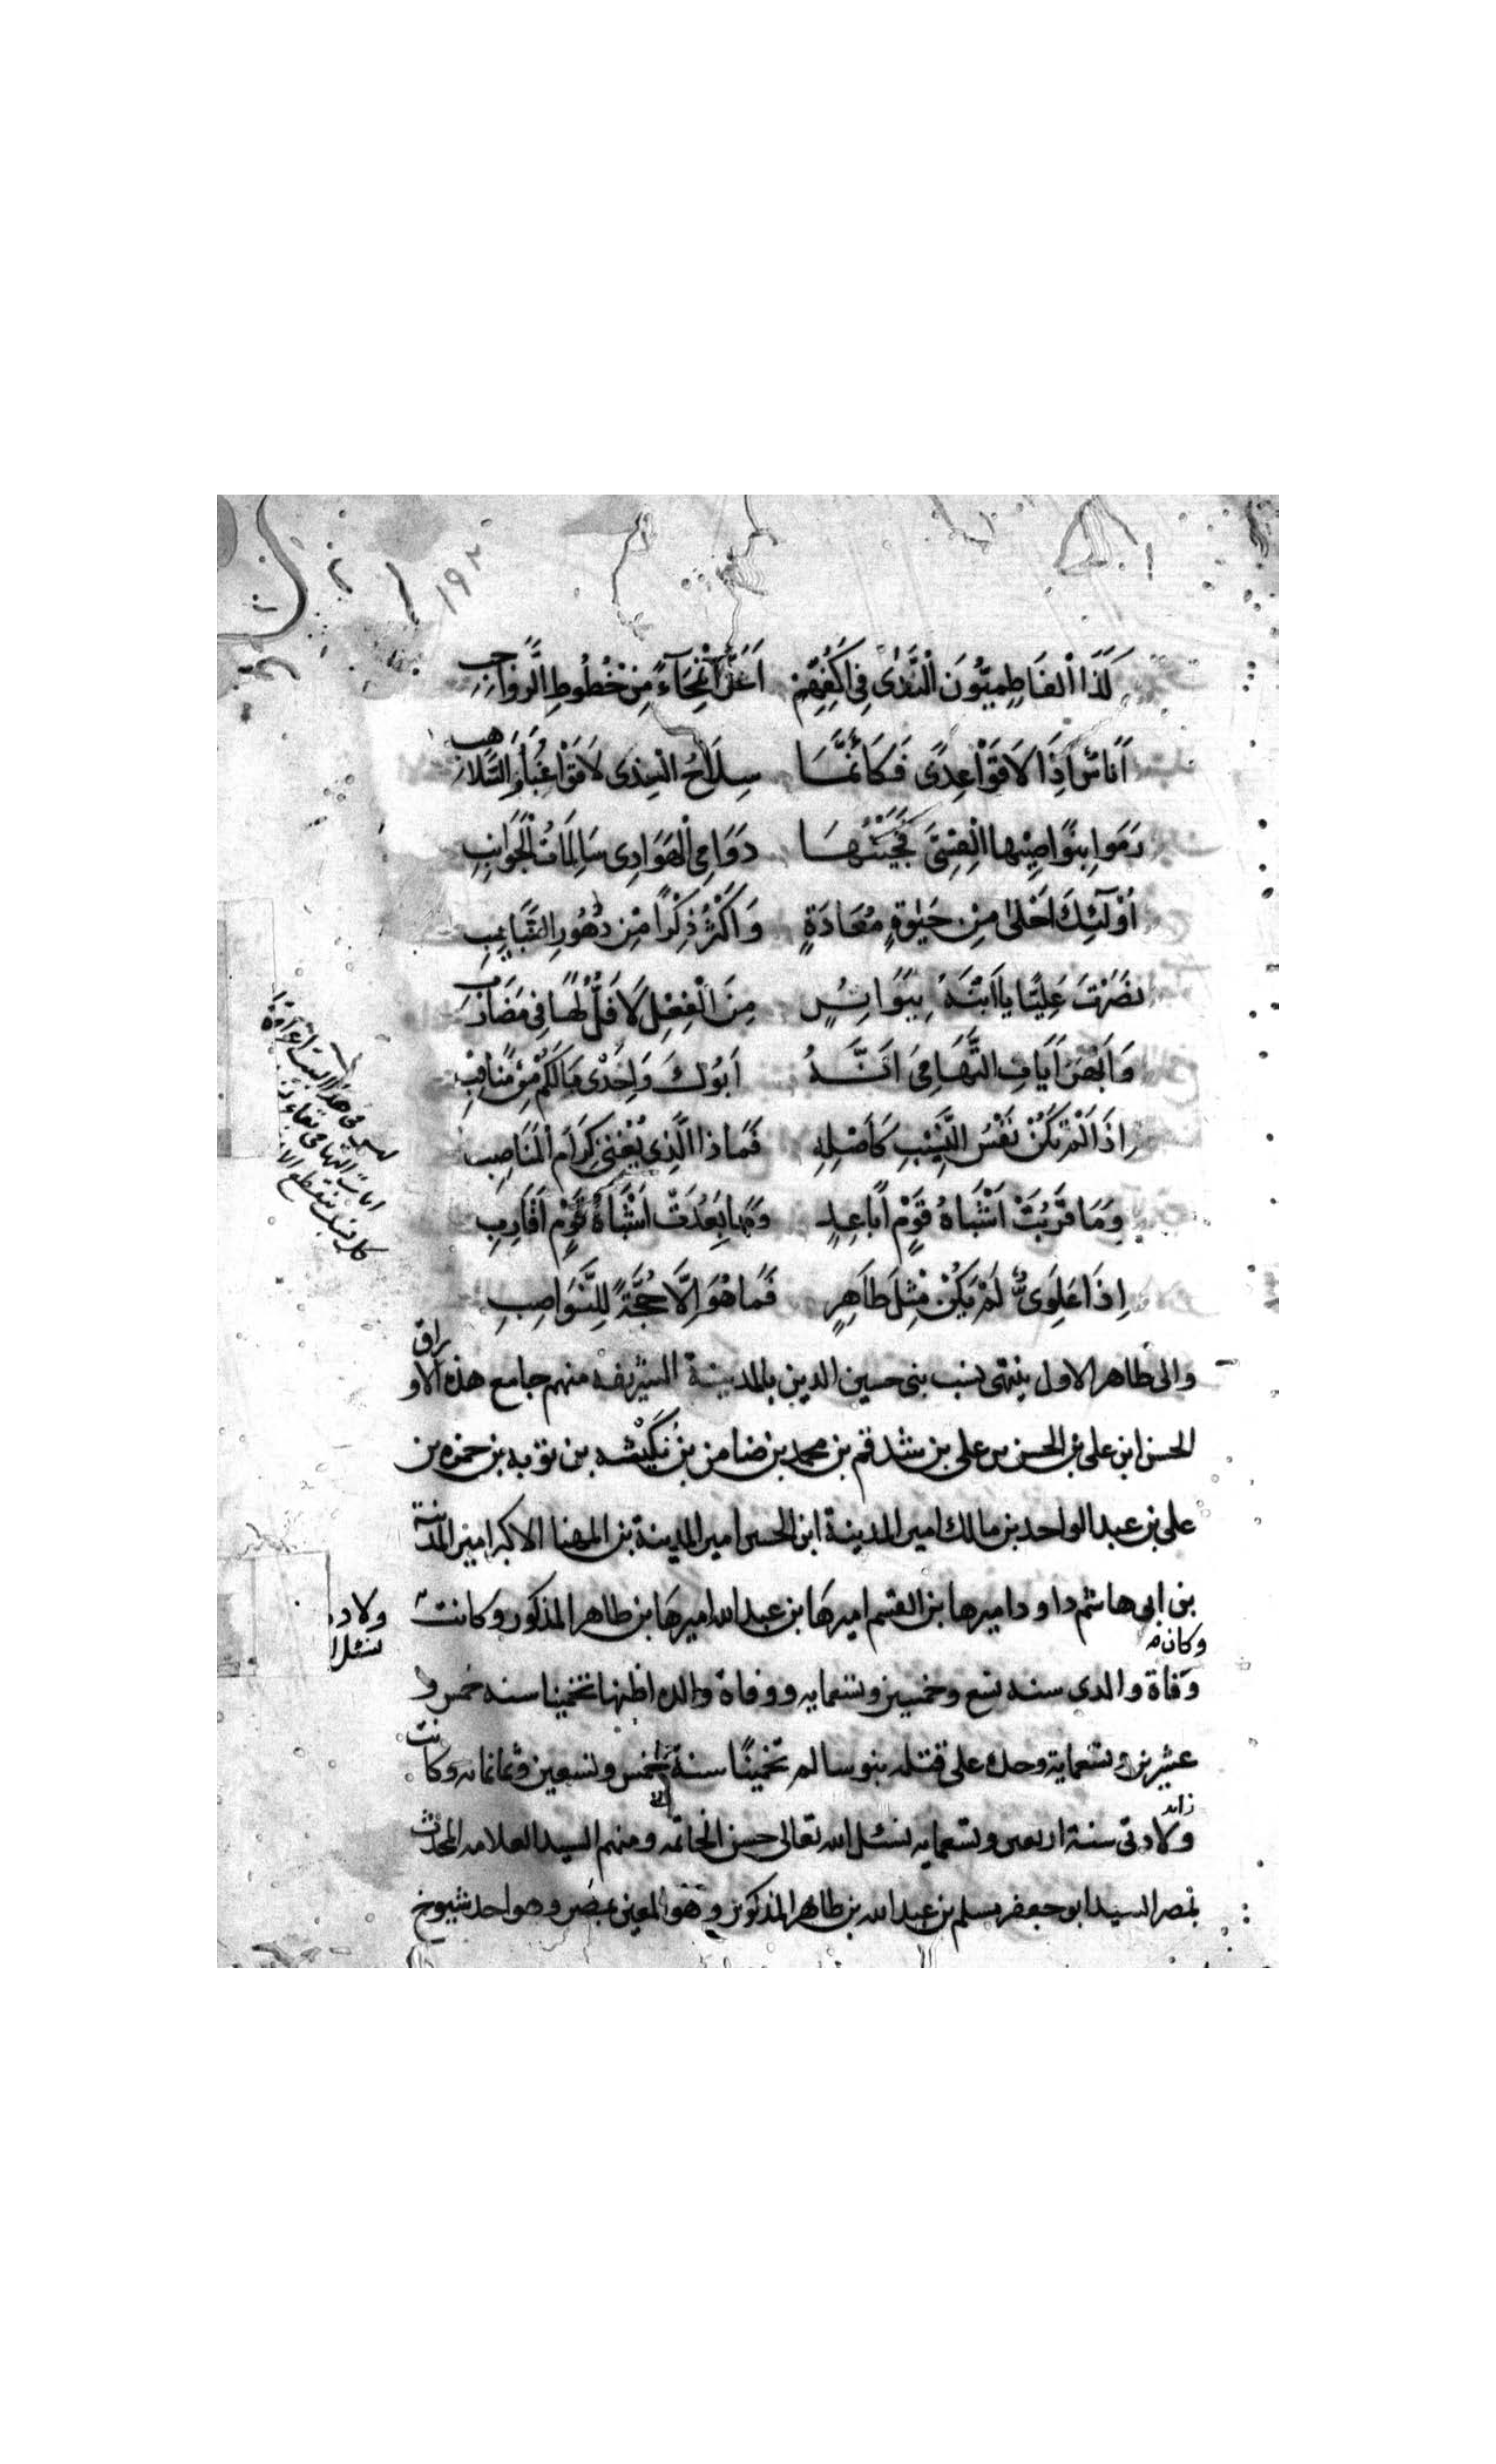 ١٩٢
كَذَا الْفَاطِمِيُّونَ الْنَّدٰى فِي اَكُفِّهِمْ اَعَزُّ انْمِحَآءً مِنْ خُطُوطِ الرَّوَاجِبِ
اُنَاسٌ اِذَا لَاقَوْا عِدًى فَكَاَنَّمَا سِلَاحُ الَّذِى لَاقَوْا غُبَارُ السَّلَاهِبِ
رَمَوا بِنَوَاصِيْهَا الْقِسِىَّ فَجِئْنَهَا دَوَامِى الْهَوَادِى سَالِمَاتُ الْجَوَانِبِ
اُوْلَٓئِكَ اَحْلىٰ مِنْ حَيٰوةٍ مُعَادَةٍ وَاَكْثَرُ ذِكْرًا مِنْ دُهُورِ الشَّبَايِبِ
نَصَرْتَ عَلِيًّا يَا ابْنَهُ بِبَوَاتِرٍ مِنَ الْفِعْلِ لَا فَلٌّ لَهَا فِى مَضَارِبِ
وَاَبْهَرُ اٰيَاتِ التَّهَامِى اَنَّهُ اَبُوْكَ وَاِحْدٰى مَالَكُمْ مِنْ مَنَاقِبْ
اِذَا لَمْ تَكُنْ نَفْسُ النَّسِيْبِ كَاَصْلِهِ فَمَا ذَا الَّذِى يُغْنِى كِرَامُ الْمَنَاصِبِ
وَمَا قَرُبَتْ اَشْبَاهُ قَوْمٍ اَبَاعِدٍ وَمَا بَعُدَتْ اَشْبَاهُ قَوْمٍ اَقَارِبِ
اِذَا عَلَوِىٌّ لَمْ يَكُنْ مِثْلَ طَاهِرٍ فَمَا هُوَ اِلَّا حُجَّةٌ لِلنَّوَاصِبِ
والى طاهر الاول ينتهى نسب بنى حسين الذين بالمدينة الشريفه منهم جامع هذه الاوراق
الحسن ابن على بن الحسن بن على بن شدقم بن محمد بن ضامن بن نُكَيْثه بن توبه بن حمزه بن
على بن عبد الواحد بن مالك امير المدينة ابن الحسين امير المدينة بن المهنا الاكبر امير المدينة
بن ابى هاشم داود اميرها بن القسم اميرهَا بن عبد الله اميرهَا بن طاهر المذكور وكانت
وكان
وفاة والدى سنه تسع وخمسين وتسعمايه ووفاة والده اظنها تخمينا سنه خمس و
عشرين وتسعماية وجده على قتله بنو سالم تخمينًا سنة خمس وتسعين وثمانمايه وكانت
ولادتى سنة اربعين وتسعمايه نسئل الله تعالى حسن الخاتمه ومنهم السيد العلامه المحدث
بمصر السيد ابو جعفر مسلم بن عبد الله بن طاهر المذكور وهو المعين بمصر وهو احد شيوخ
ليس فى هذا البيت
ايات التهامى
ولاد
نسئل ا